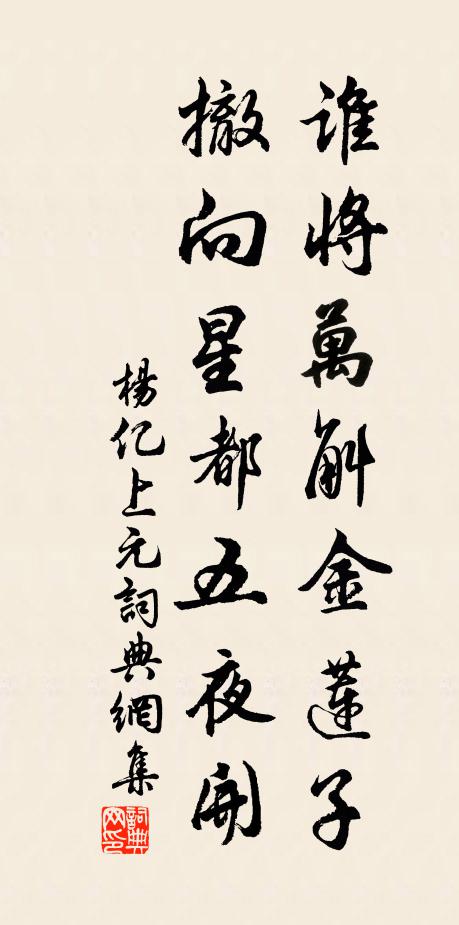 誰將萬斛金蓮子
撒向星都五夜開
楊億上元詞典網集
詞典网印